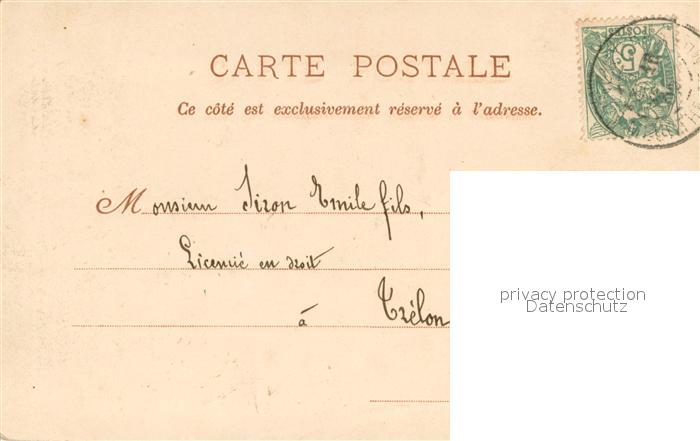 CARTE POSTALE
Ce côté est exclusivement réservé à l'adresse.
POSTES
5
Monsieur Siron Emile fils,
Licencié en droit
à Trélon
privacy protection
Datenschutz